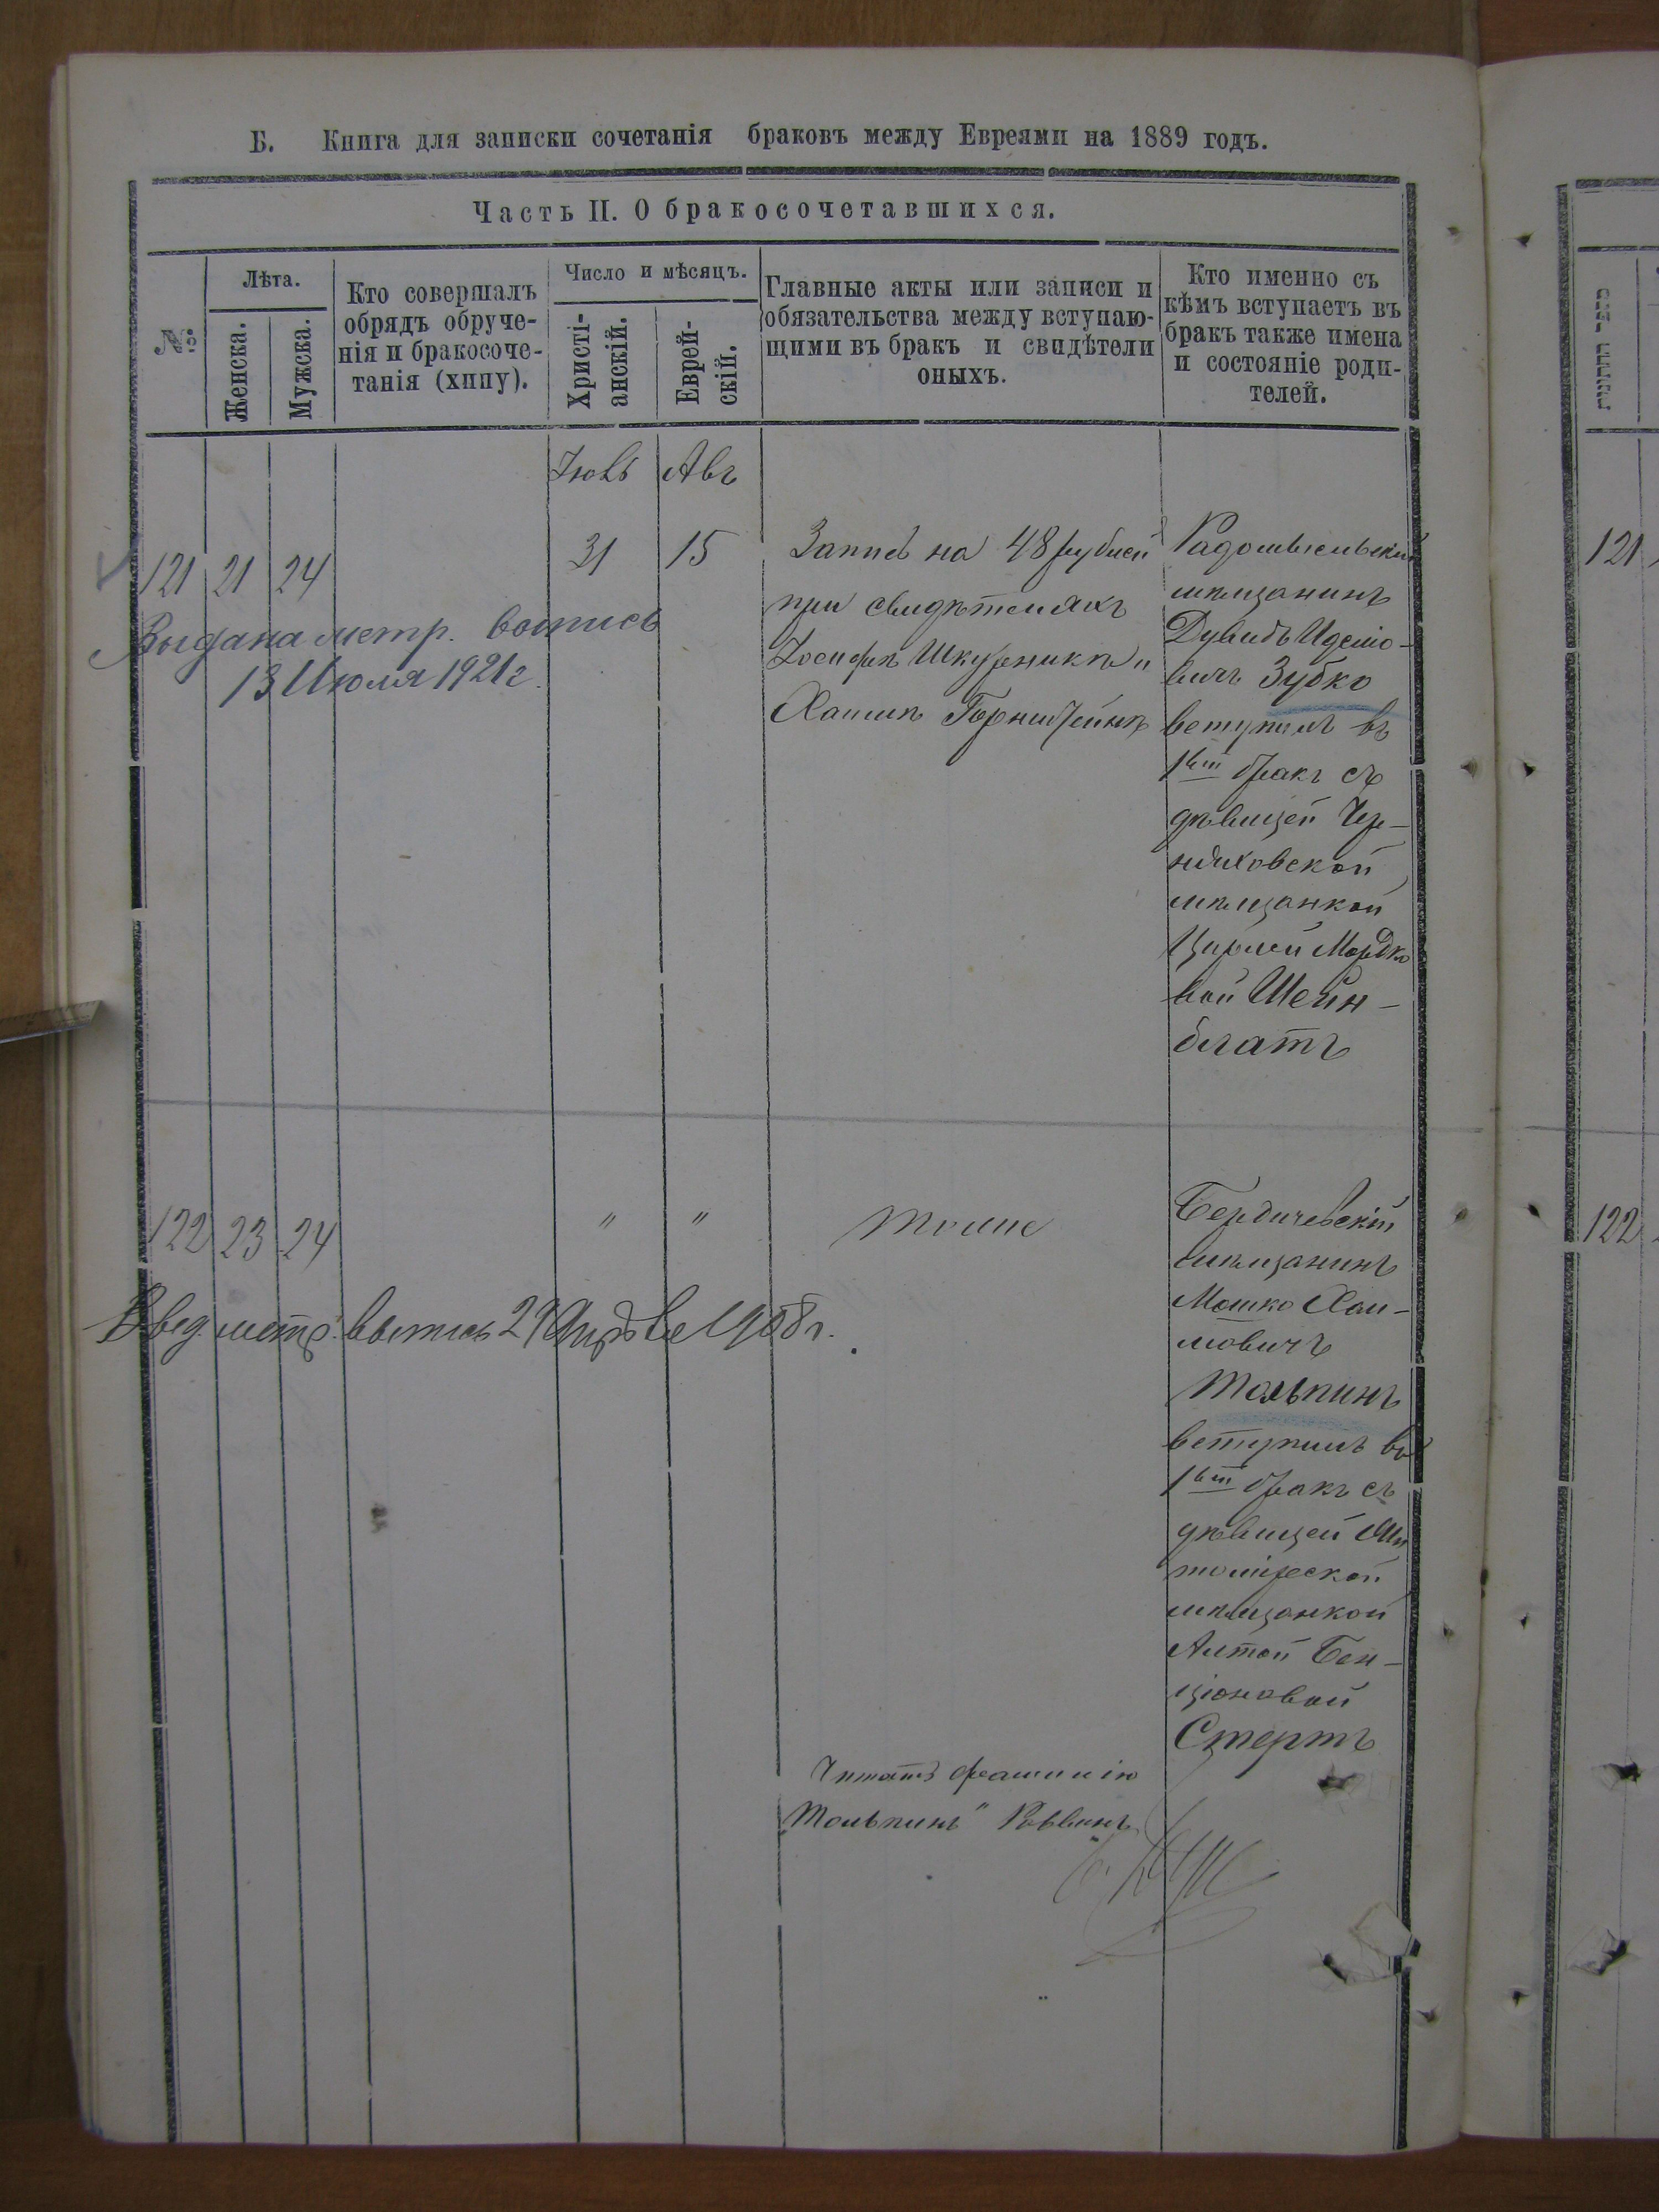 Б. Книга для записки сочетанія браковъ между Евреями на 1889 годъ.
Часть II. О бракосочетавшихся.
№:
Лѣта.
Женска.
Мужска.
Кто совершалъ
обрядъ обруче-
нія и бракосоче-
танія (хипу).
Число и мѣсяцъ.
Христі-
анскій.
Еврей-
скій.
Главные акты или записи и
обязательства между вступаю-
щими въ бракъ и свидѣтели
оныхъ.
Кто именно съ
кѣмъ вступаетъ въ
бракъ также имена
и состояніе роди-
телей.
Іюль Авъ
121 21 24 31 15
Выдана метр. выпись
13 Июля 1921 г.
Запись на 48 рублей
при свидѣтеляхъ
Іосифѣ Шкурникѣ и
Хаимѣ
Радомысльскій
мѣщанинъ
Дувидъ Иделіо-
вичъ Зубко
вступилъ въ
1ый бракъ съ
дѣвицей Чер-
няховской
мѣщанкой
Цирлей Мордко
вой Шейн-
блатъ
122 23 24 " " тоже
метр. выпись 29 1908 г.
Бердичевскій
мѣщанинъ
Мошко Хаи-
мовичъ
Тольпинъ
вступилъ въ
1ый бракъ съ
дѣвицей Жи
томірской
мѣщанкой
Алтой Бен-
ціоновой
Стертъ
Читать фамилію
„Тольпинъ" Раввинъ
121
122